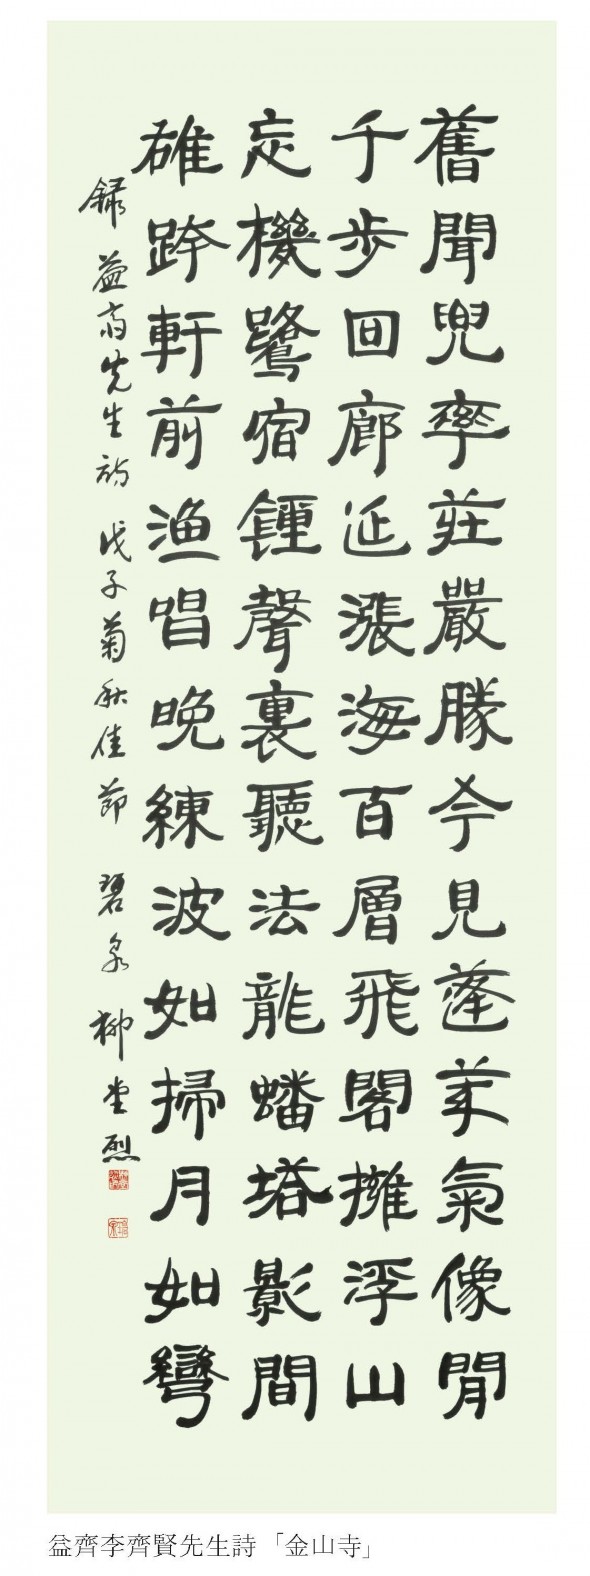 舊聞兜率莊嚴勝今見蓬萊氣像閒
千步回廊延漲海百層飛閣擁浮山
忘機鷺宿鍾聲裏聽法龍蟠塔影間
雄跨軒前漁唱晚練波如掃月如彎
錄益齋先生詩 戊子菊秋佳節 碧泉 柳堂烈
益齊李齊賢先生詩「金山寺」